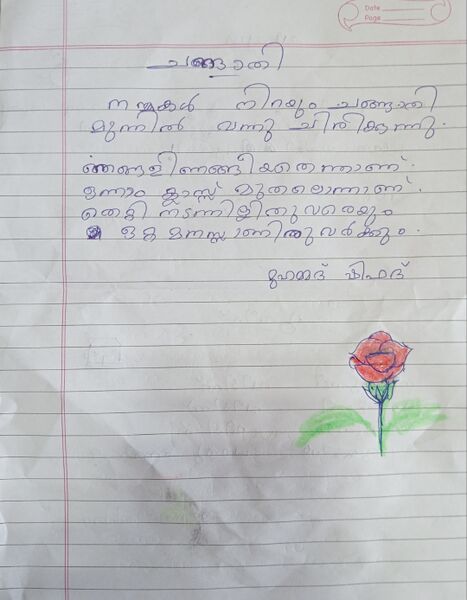 Date
Page
ചങ്ങാതി
നന്മകൾ നിറയും ചങ്ങാതി
മുന്നിൽ വന്നു ചിരിക്കുന്നു.
ഞങ്ങളിണങ്ങീയതെന്നാണ്.
ഒന്നാം ക്ലാസ്സ് മുതലൊന്നാണ്.
തെറ്റി നടന്നില്ലിതുവരെയും
ഒരു മനസ്സാണിതുവർക്കും.
മുഹമ്മദ് ഷിഹാദ്